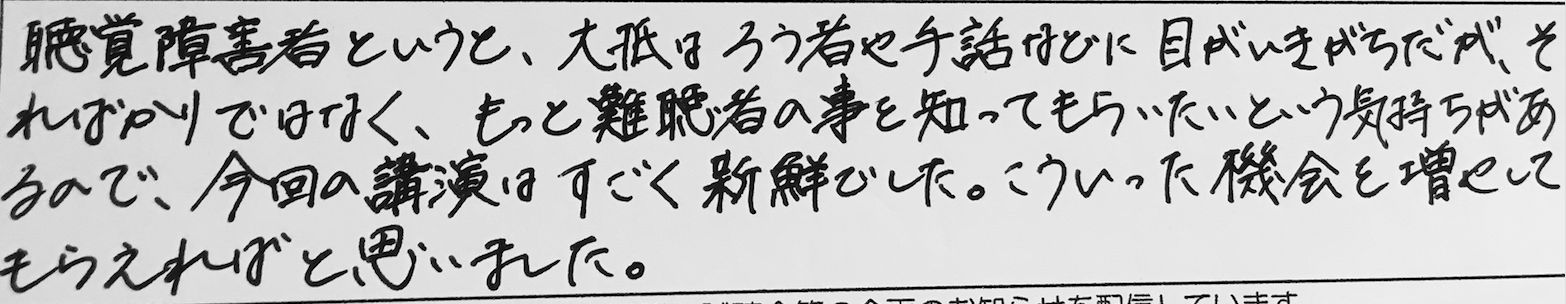 聴覚障害者というと、大抵はろう者や手話などに目がいきがちだが、そ
ればかりではなく、もっと難聴者の事を知ってもらいたいという気持ちがあ
るので、今回の講演はすごく新鮮でした。こういった機会を増やして
もらえればと思いました。
のお知らせを配信しています